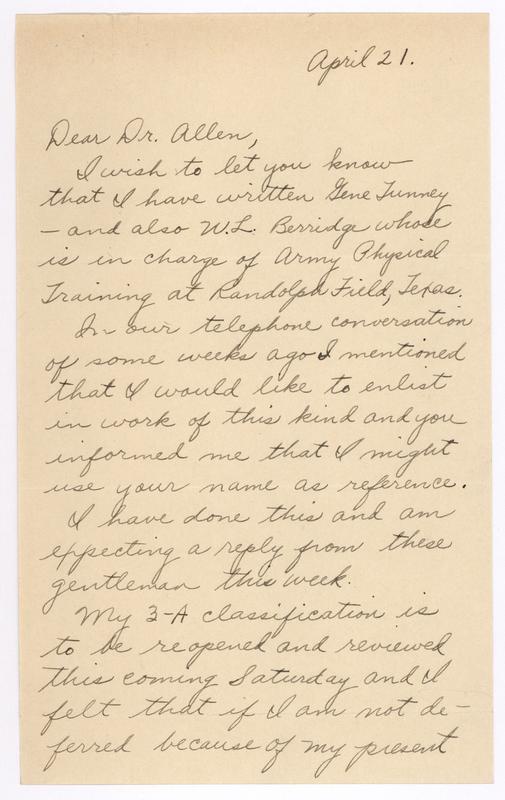 April 21.
Dear Dr. Allen,
I wish to let you know
that I have written Gene Tunney
- and also W.L. Berridge whose
is in charge of Army Physical
Training at Randolph Field, Texas.
In our telephone conversation
of some weeks ago I mentioned
that I would like to enlist
in work of this kind and you
informed me that I might
use your name as reference.
I have done this and am
expecting a reply from these
gentleman this week.
My 3-A classification is
to be reopened and reviewed
this coming Saturday and I
felt that if I am not de-
ferred because of my present